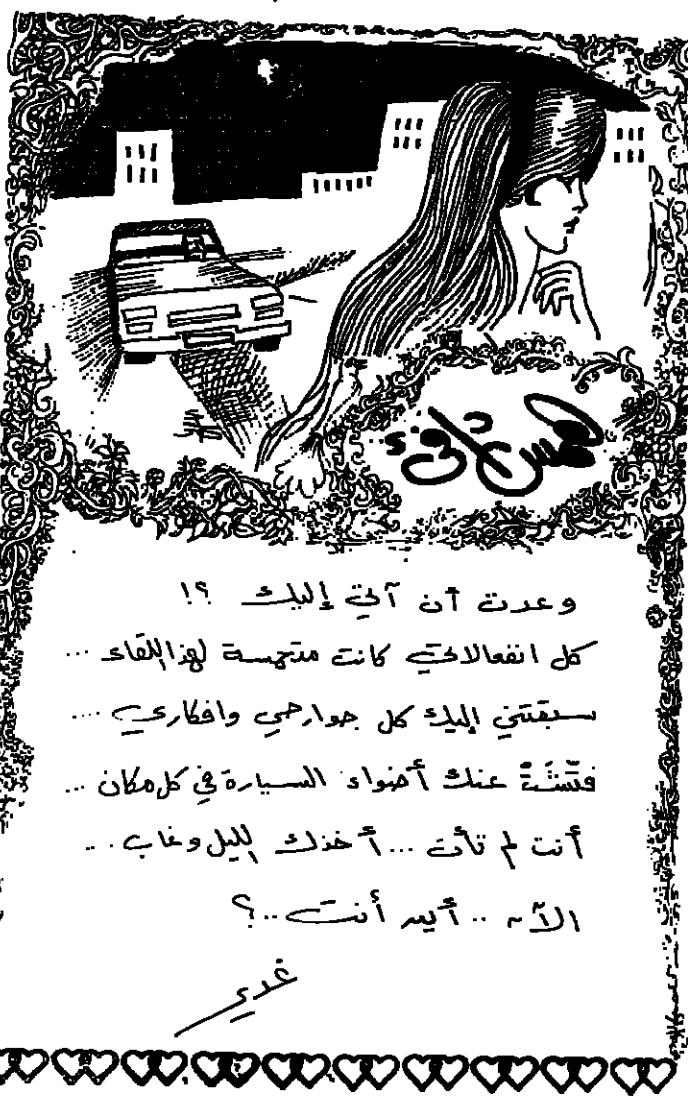 همس دافئ ..
وعدت أن آتي إليك ؟!
كل انفعالاتي كانت متحمسة لهذا اللقاء ...
سبقتني إليك كل جوارحي وافكاري ...
فتّشَتْ عنك أضواء السيارة في كل مكان ...
أنت لم تأت ... أخذك الليل وغاب ...
الآن .. أين أنت ..؟
غدير